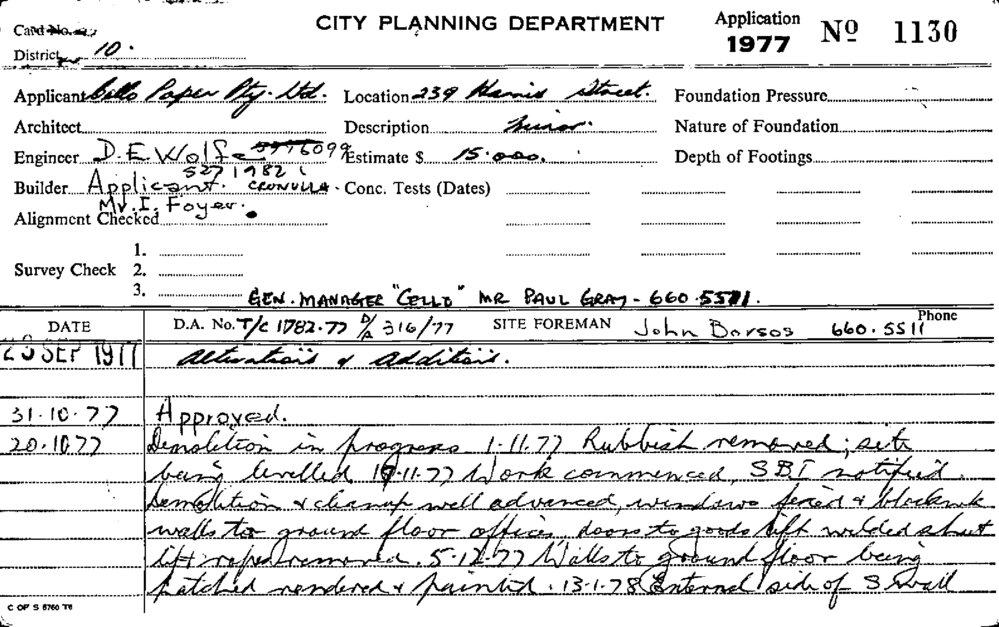 CITY PLANNING DEPARTMENT
Application 1977 Nº 1130
Card No.
District 10.
Applicant Cello Paper Pty. Ltd. Location 239 Harris Street. Foundation Pressure
Architect Description Minor. Nature of Foundation
Engineer D.E Wolfe 5776099 Estimate $ 15.000. Depth of Footings
5271982 CRONULLA
Builder Applicant. Conc. Tests (Dates)
Mr. I. Foyer.
Alignment Checked
1.
Survey Check 2.
3. GEN. MANAGER "CELLO" MR PAUL GRAY - 660.5511.
DATE D.A. No. T/C 1782.77 D/A 316/77 SITE FOREMAN John Borsos 660.5511 Phone
23 SEP 1977 Alterations & Additions.
31.10.77 Approved.
20.10.77 Demolition in progress 1.11.77 Rubbish removed; site
being levelled 17.11.77 Work commenced, SBI notified.
Demolition & cleanup well advanced, windows & blockwk
walls to ground floor offices, doors to goods lift welded shut
lift ropes removed. 5.12.77 Walls to ground floor being
patched rendered & painted. 13.1.78 External side of S wall
C OF S 6760 T6